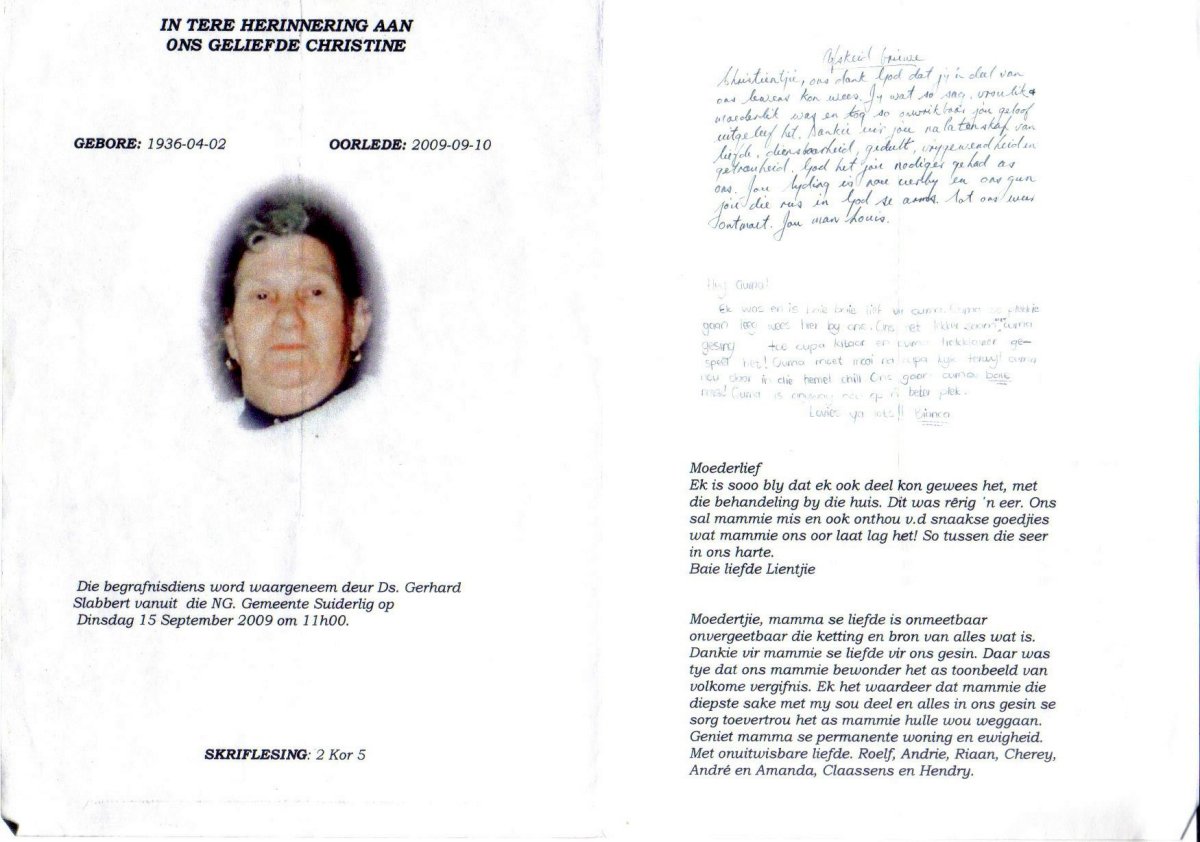 IN TERE HERINNERING AAN
ONS GELIEFDE CHRISTINE
GEBORE: 1936-04-02 OORLEDE: 2009-09-10
Die begrafnisdiens word waargeneem deur Ds. Gerhard
Slabbert vanuit die NG. Gemeente Suiderlig op
Dinsdag 15 September 2009 om 11h00.
SKRIFLESING: 2 Kor 5
Afskeid briewe
Christientjie, ons dank God dat jy 'n deel van
ons lewens kon wees. Jy wat so sag, vroulik +
moederlik was en tog so onwrikbaar jou geloof
uitgeleef het. Dankie vir jou nalatenskap van
liefde, diensbaarheid, geduld, vrygewendheid en
getrouheid. God het jou nodiger gehad as
ons. Jou lyding is nou verby en ons gun
jou die rus in God se arms. Tot ons weer
ontmoet. Jou man Louis.
Hej Ouma!
Ek was en is baie baie lief vir ouma. Ouma se plekkie
gaan leeg wees hier by ons. Ons het lekker saam met ouma
gesing toe oupa kitaar en ouma
speel het! Ouma moet mooi na oupa kyk terwyl ouma
nou daar in die hemel chill. Ons gaan ouma baie
mis! Ouma is nou op 'n beter plek.
Lovies ya lots!! Bianca
Moederlief
Ek is sooo bly dat ek ook deel kon gewees het, met
die behandeling by die huis. Dit was rêrig 'n eer. Ons
sal mammie mis en ook onthou v.d snaakse goedjies
wat mammie ons oor laat lag het! So tussen die seer
in ons harte.
Baie liefde Lientjie
Moedertjie, mamma se liefde is onmeetbaar
onvergeetbaar die ketting en bron van alles wat is.
Dankie vir mammie se liefde vir ons gesin. Daar was
tye dat ons mammie bewonder het as toonbeeld van
volkome vergifnis. Ek het waardeer dat mammie die
diepste sake met my sou deel en alles in ons gesin se
sorg toevertrou het as mammie hulle wou weggaan.
Geniet mamma se permanente woning en ewigheid.
Met onuitwisbare liefde. Roelf, Andrie, Riaan, Cherey,
André en Amanda, Claassens en Hendry.